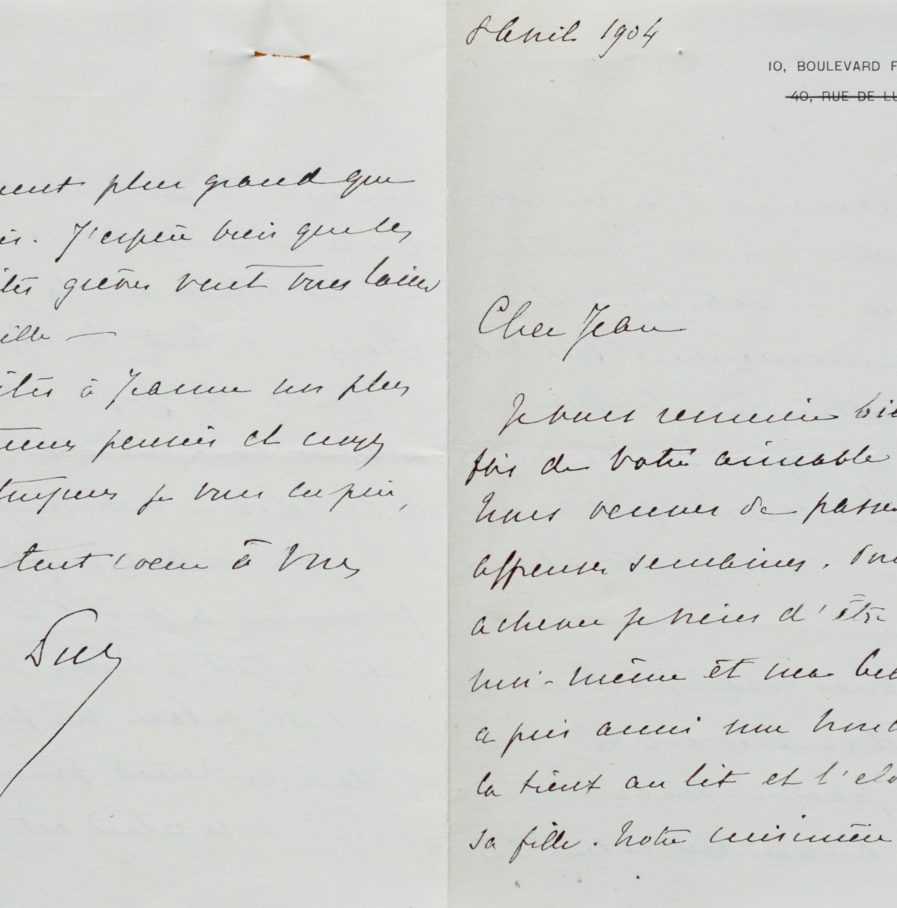 plus grand que
J'espère bien que les
grèves vont vous laisser
à Jeanne nos plus
pensées et croyez
toujours je vous en prie,
tout coeur à vous
8 Avril 1904
10, BOULEVARD F
40, RUE DE LU
Cher Jean
Je vous remercie bie
fois de votre aimable
Nous venons de passe
affreuses semaines. Pou
achever je viens d'être
moi-même et ma
a pris aussi une
la tient au lit et l'elo
sa fille. Notre